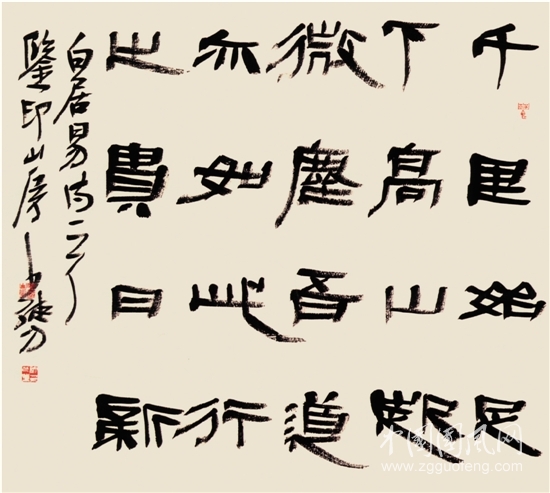 千里始足
下高山起
微塵吾道
亦如此行
之貴日新
白居易詩
鑒印山房
中國國風网
www.zgguofeng.com